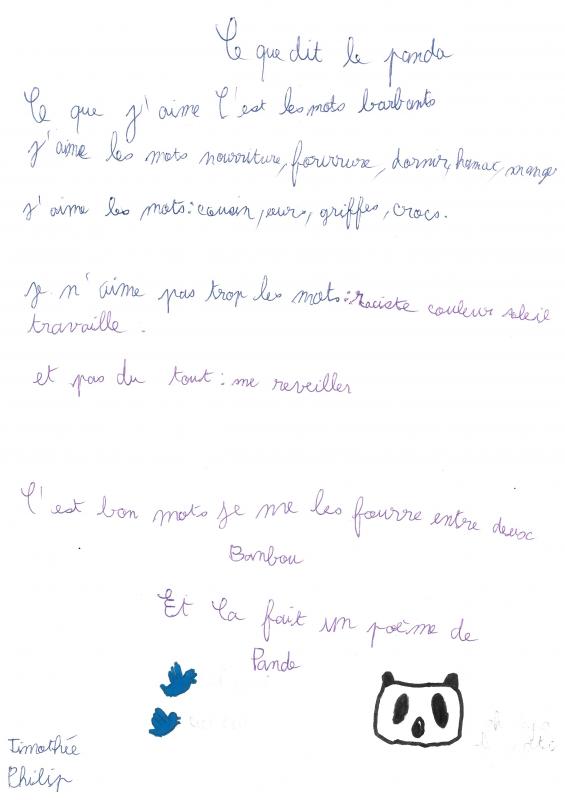 Ce que dit le panda
Ce que j'aime C'est les mots barbants
j'aime les mots nourriture, fourrure, dormir, hamac, manger
j'aime les mots: cousin, ours, griffes, crocs.
je n'aime pas trop les mots: raciste couleur soleil
travaille.
et pas du tout: me reveiller
C'est bon mots je me les fourre entre deux
Banbou
Et Ca fait un poème de
Pande
Timothée
Philip